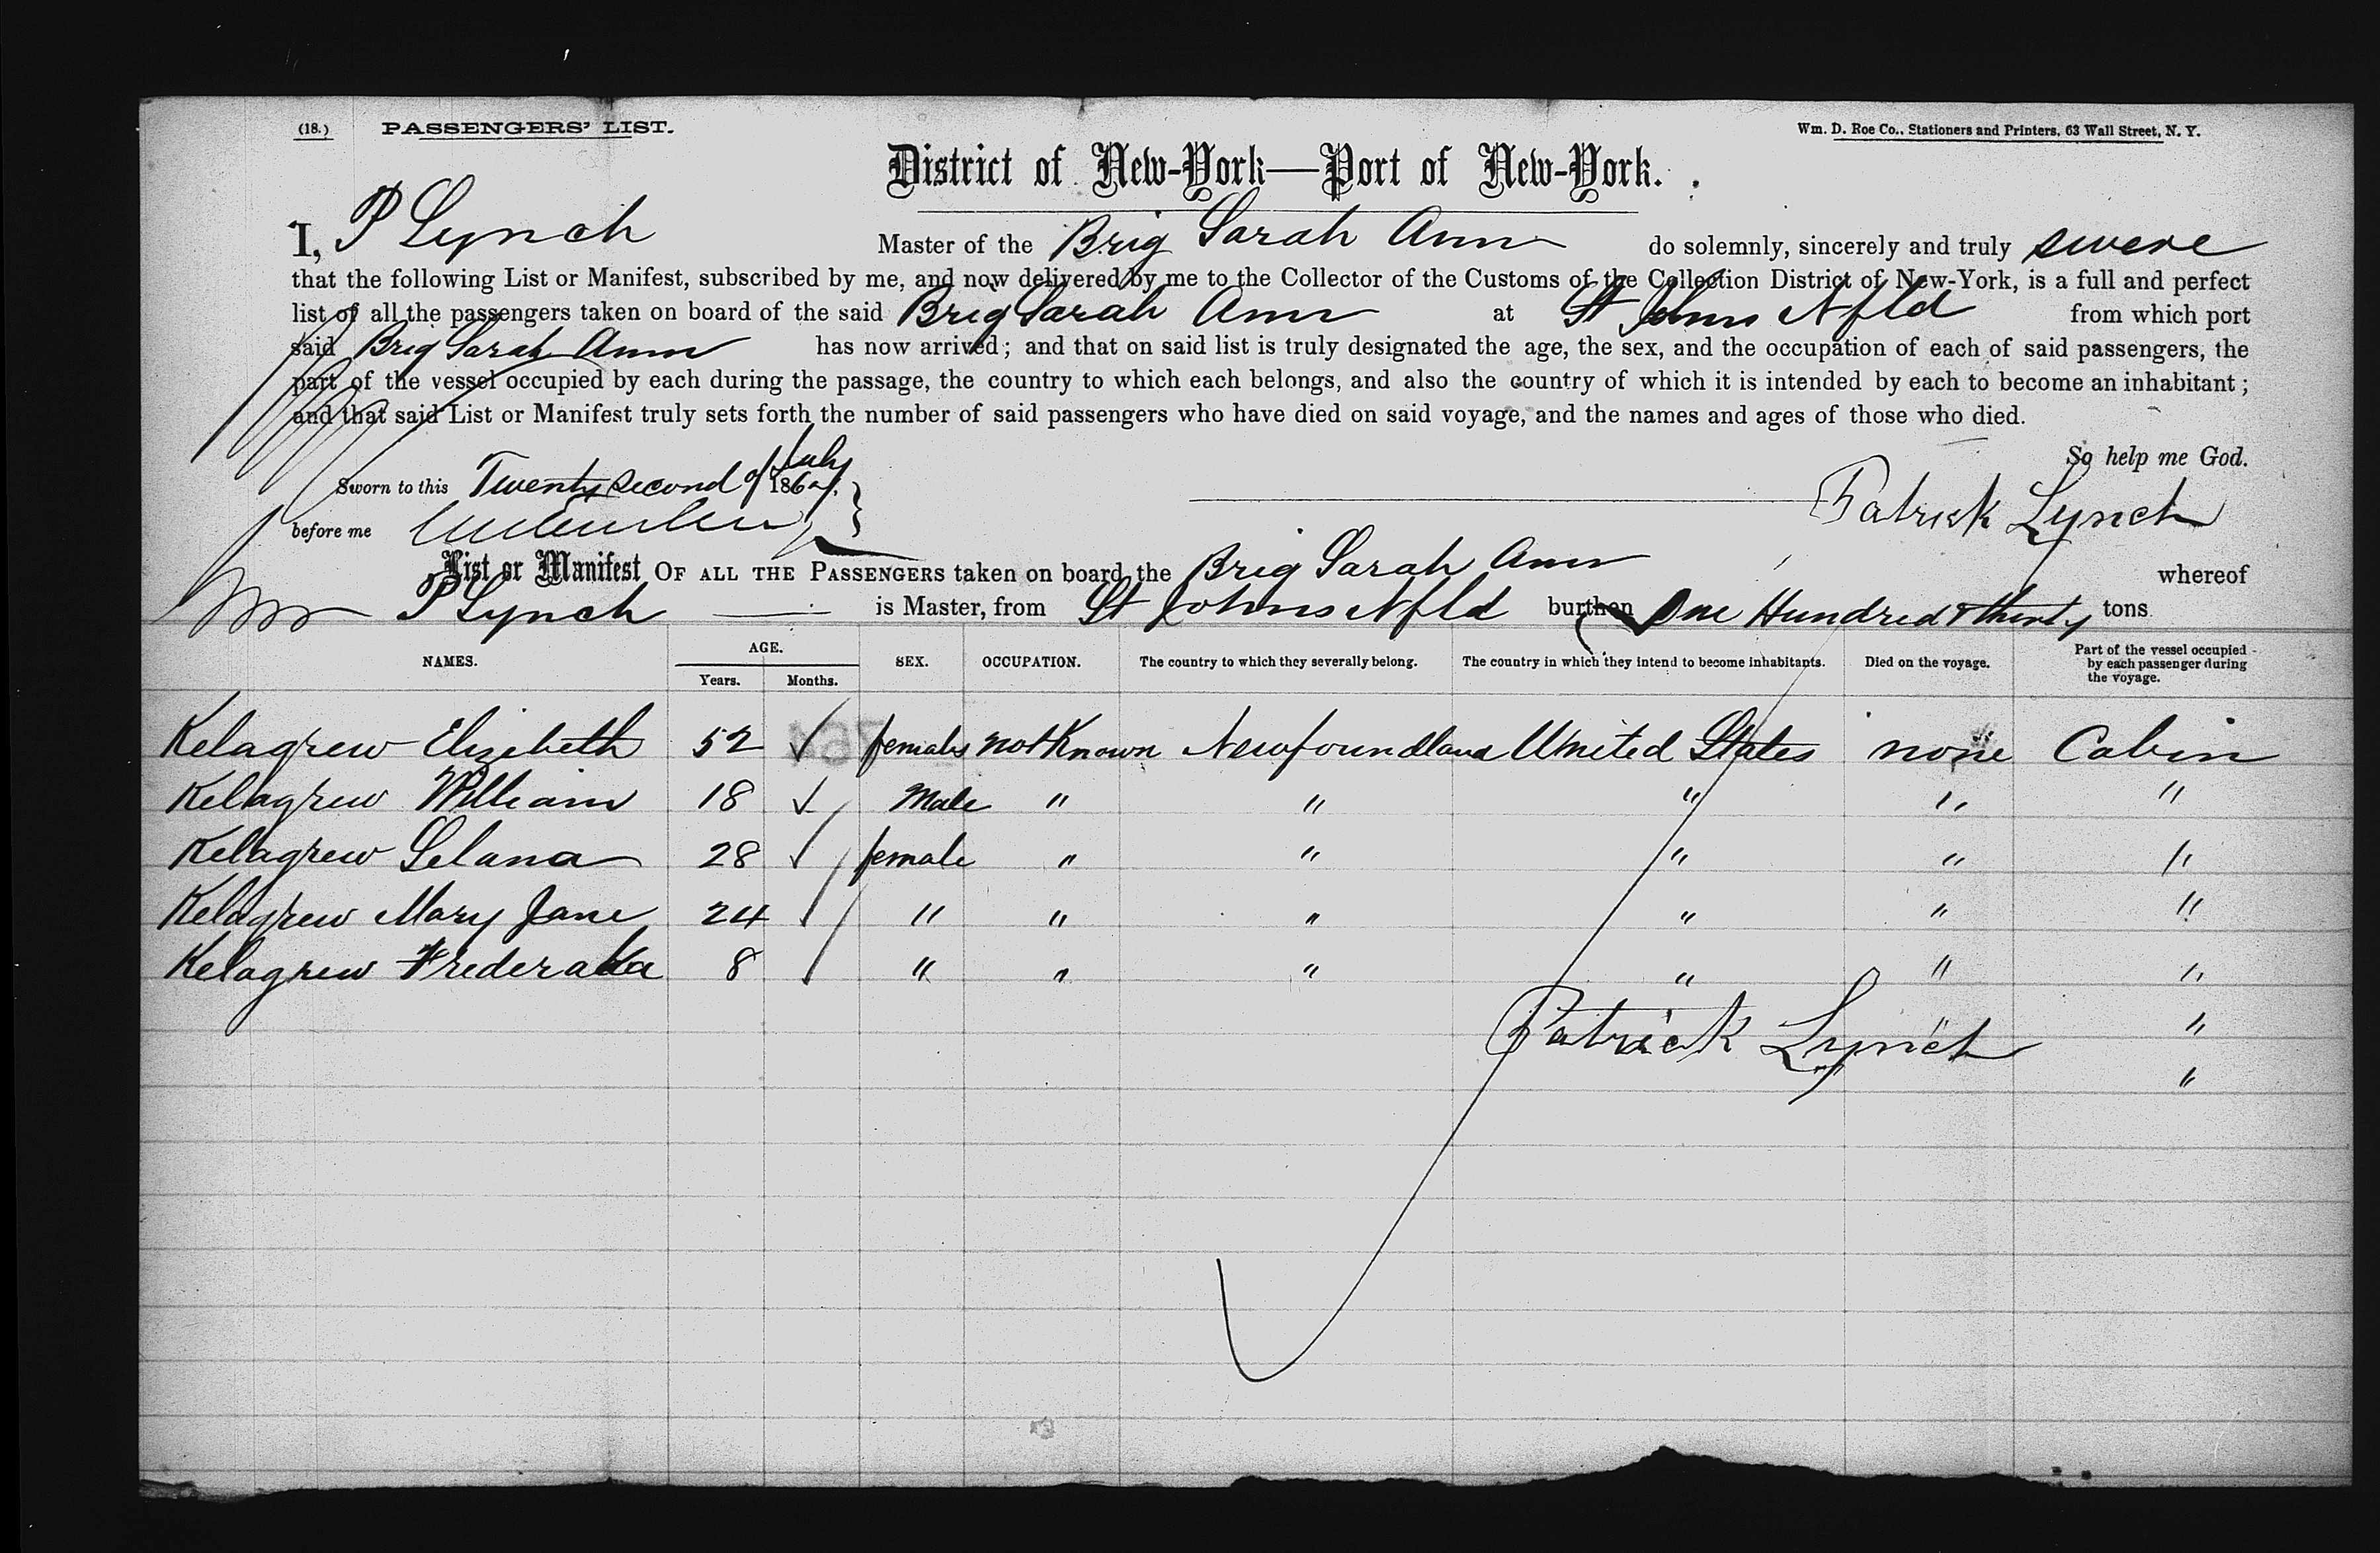 (18.) PASSENGERS' LIST. Wm. D. Roe Co., Stationers and Printers, 63 Wall Street, N. Y.
District of New-York—Port of New-York.
I, P Lynch Master of the Brig Sarah Ann do solemnly, sincerely and truly swere
that the following List or Manifest, subscribed by me, and now delivered by me to the Collector of the Customs of the Collection District of New-York, is a full and perfect
list of all the passengers taken on board of the said Brig Sarah Ann at St Johns Nfld from which port
said Brig Sarah Ann has now arrived; and that on said list is truly designated the age, the sex, and the occupation of each of said passengers, the
part of the vessel occupied by each during the passage, the country to which each belongs, and also the country of which it is intended by each to become an inhabitant;
and that said List or Manifest truly sets forth the number of said passengers who have died on said voyage, and the names and ages of those who died.
So help me God.
Sworn to this Twenty second of July 186
before me
Patrick Lynch
List or Manifest OF ALL THE PASSENGERS taken on board the Brig Sarah Ann whereof
P Lynch is Master, from St Johns Nfld burthen One Hundred & thirty tons
NAMES. AGE. Years. Months. SEX. OCCUPATION. The country to which they severally belong. The country in which they intend to become inhabitants. Died on the voyage. Part of the vessel occupied by each passenger during the voyage.
Kelagrew Elizebeth 52 female not Known Newfoundland United States none Cabin
Kelagrew William 18 Male " " " " "
Kelagrew Selana 28 female " " " " "
Kelagrew Mary Jane 24 " " " " " "
Kelagrew Frederaka 8 " " " " " "
Patrick Lynch " "
"